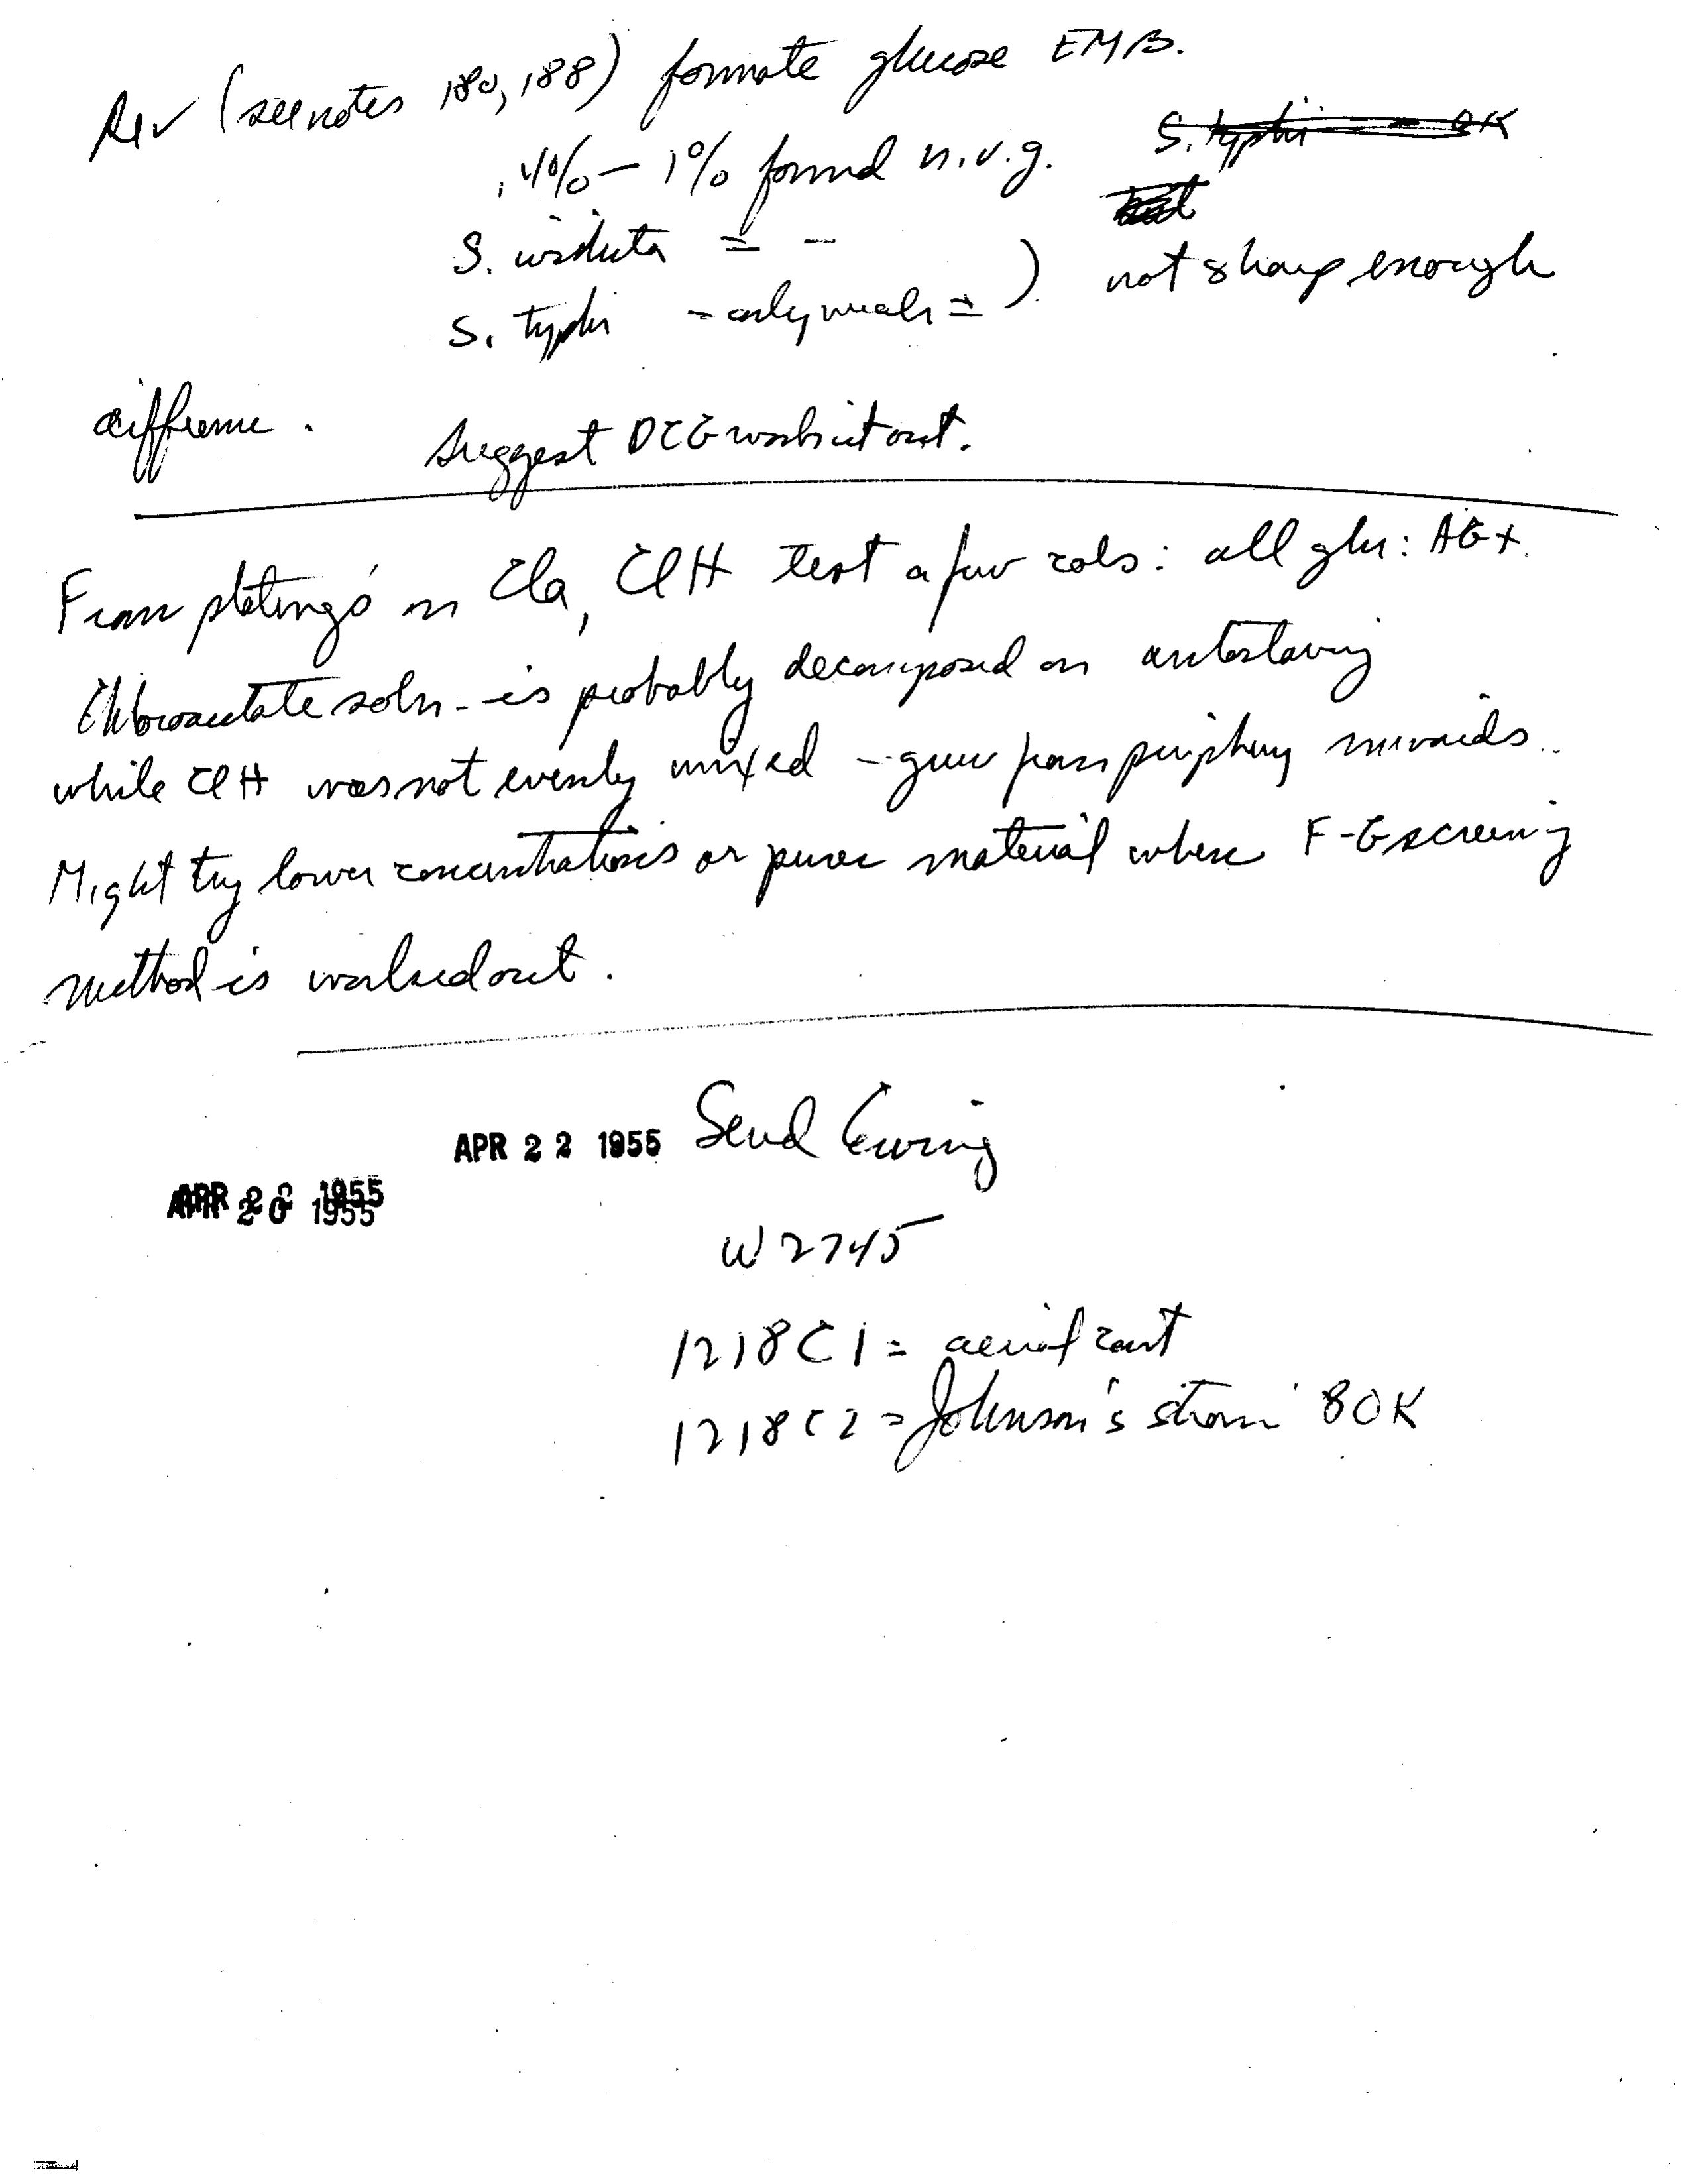 Rev (see notes 180, 188) formate glucose EMB.
.4% – 1% found n.v.g.
S. typhi – – OK
S. = –
S. typhi – only weak = ) not sharp enough
difference. Suggest DCG work it out.
From platings on Cla, ClH test a few cols: all glu: AG+.
Chloroacetate soln – is probably decomposed on autoclaving
while ClH was not evenly mixed – grew from periphery inwards.
Might try lower concentrations or purer material where F-G screening
method is worked out.
APR 22 1955 Send Ewing
APR 1955
W2745
1218C1 = aerial
1218C2 = Johnson's strain 80K